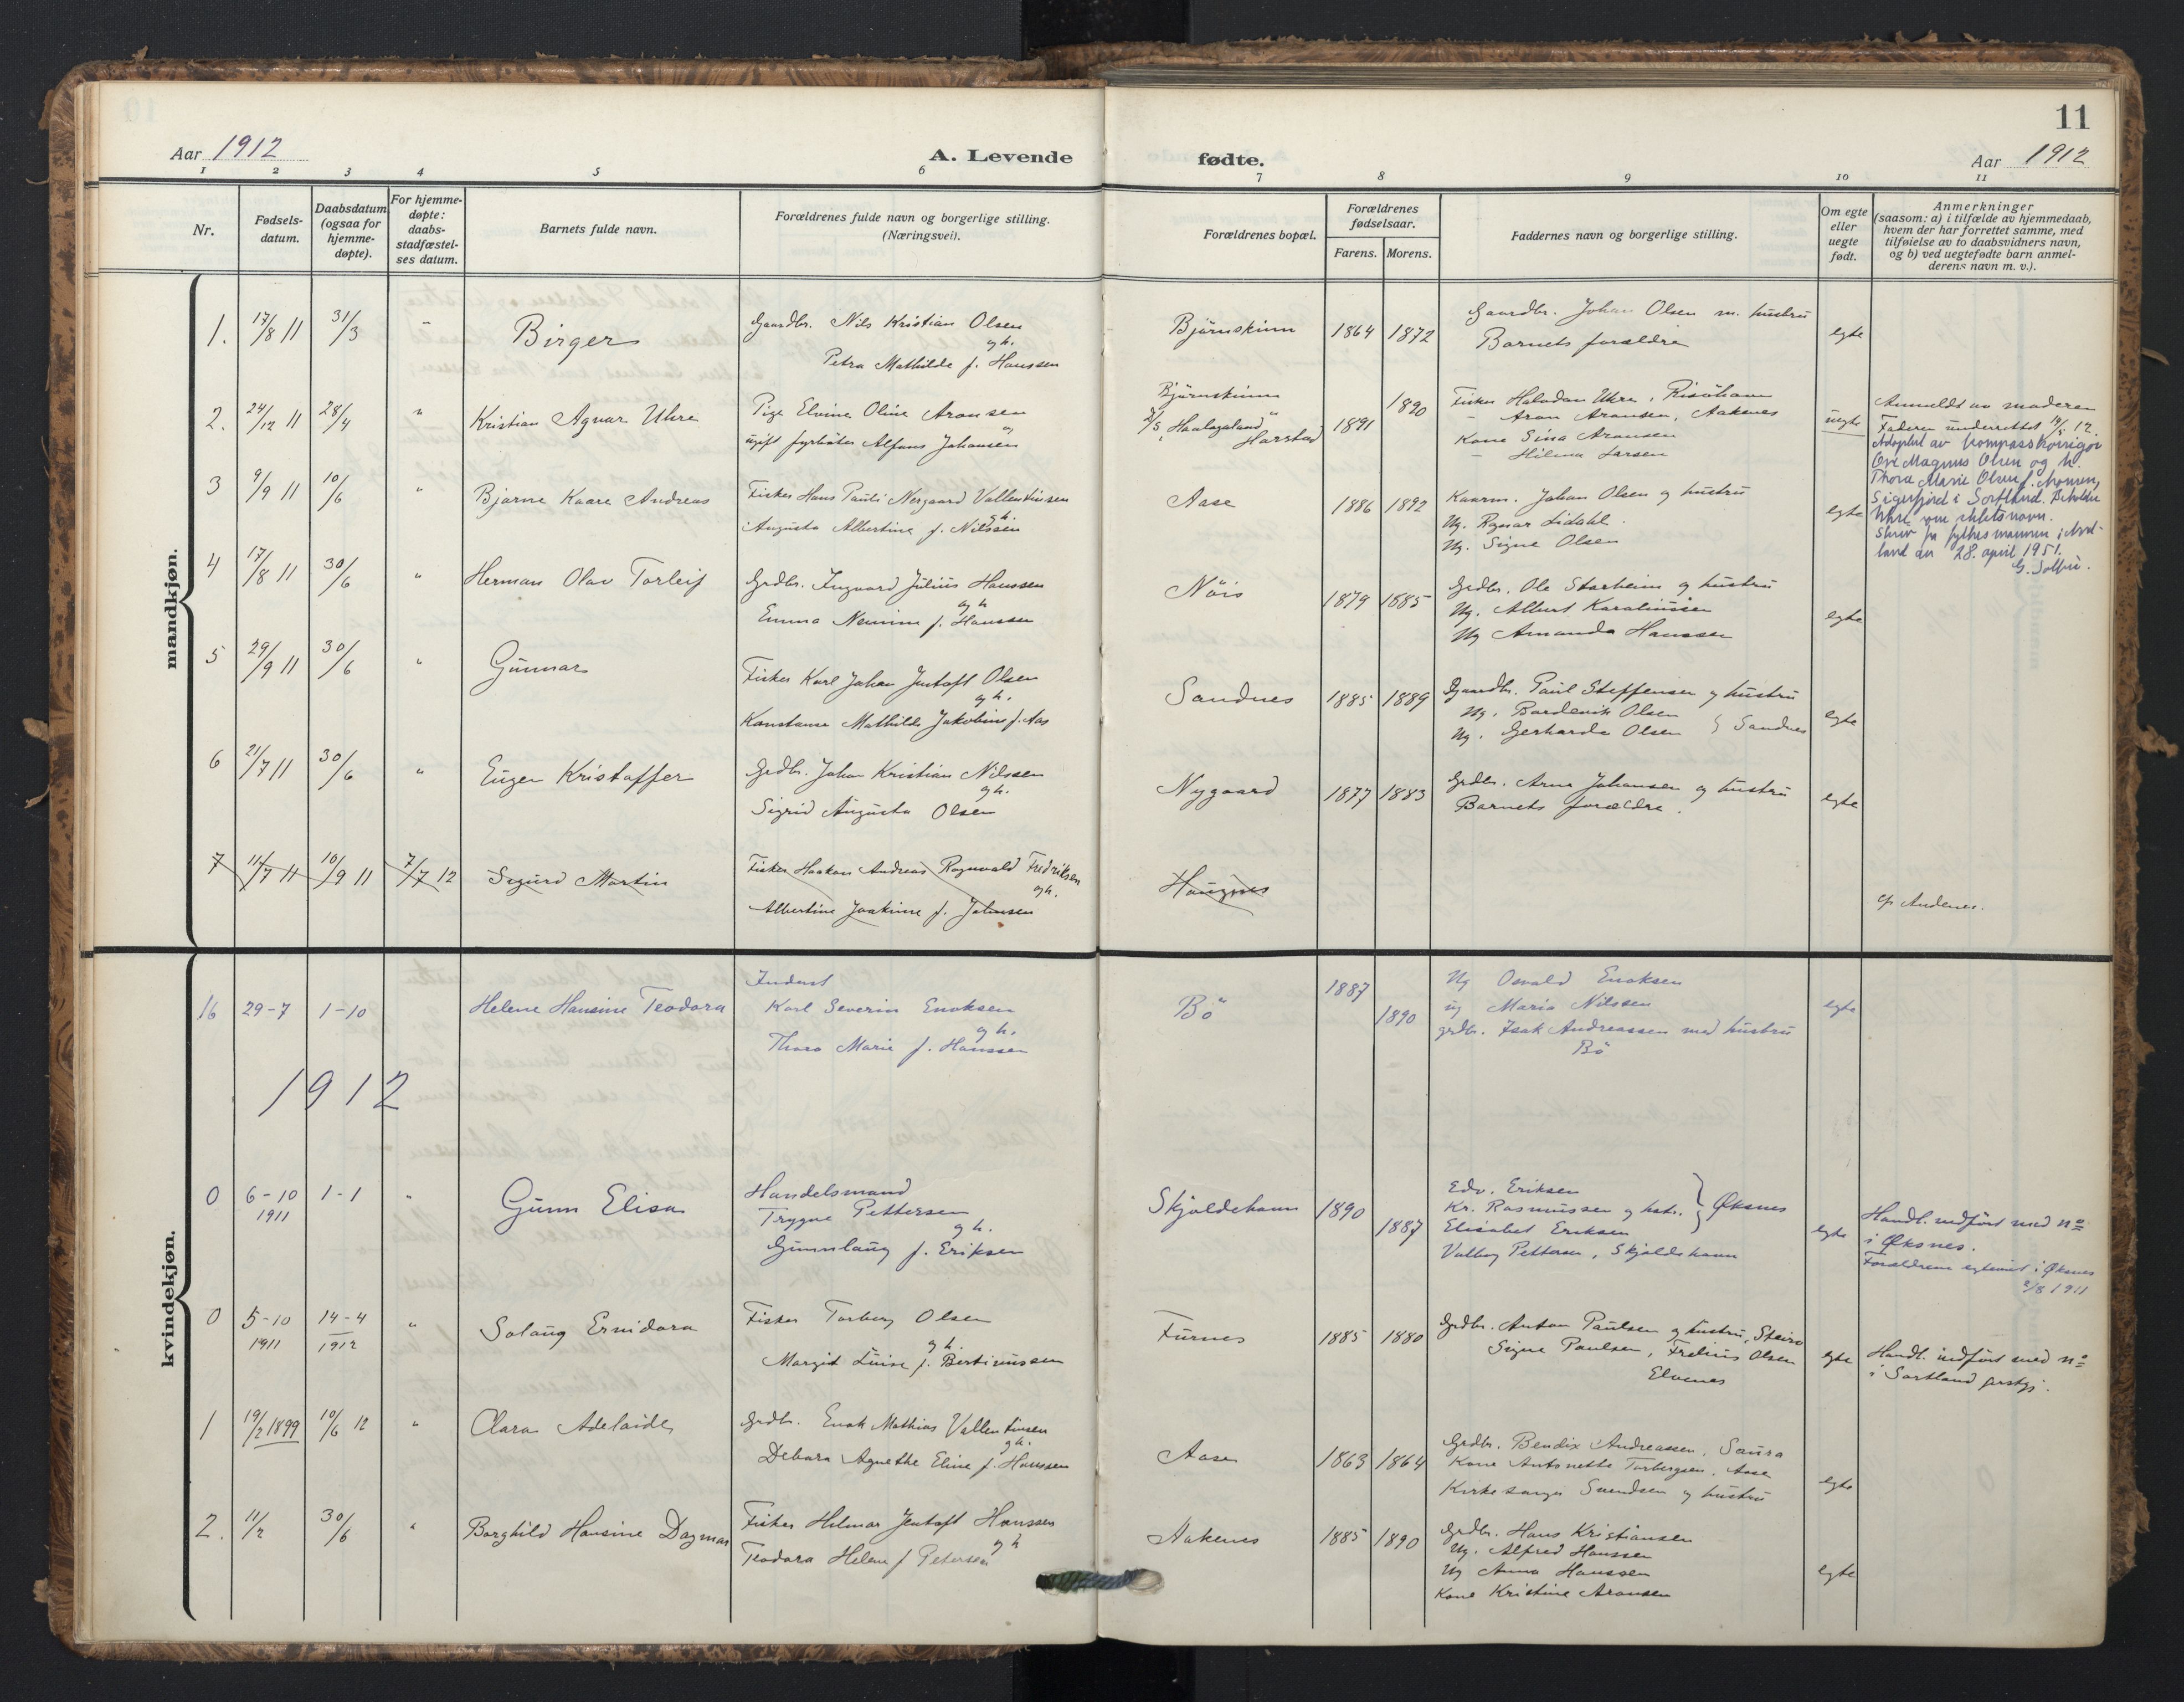 11
Aar 1912
A. Levende
fødte.
Aar 1912
1 2 3 4 5 6 7 8 9 10 11
Nr.
Fødsels-
datum.
Daabsdatum
(ogsaa for
hjemme-
døpte).
For hjemme-
døpte:
daabs-
stadfæstel-
ses datum.
Barnets fulde navn.
Forældrenes fulde navn og borgerlige stilling.
(Næringsvei).
Forældrenes bopæl.
Forældrenes
fødselsaar.
Farens. Morens.
Faddernes navn og borgerlige stilling.
Om egte
eller
uegte
født.
Anmerkninger
(saasom: a) i tilfælde av hjemmedaab,
hvem der har forrettet samme, med
tilføielse av to daabsvidners navn,
og b) ved uegtefødte barn anmel-
derens navn m. v.).
mandkjøn.
1. 17/8 11 31/3 " Birger
Gaardbr. Nils Kristian Olsen
og h.
Petra Mathilde f. Hanssen
Bjørnskinn 1864 1872
Gaardbr. Johan Olsen m. hustru
Barnets forældre
egte
2. 24/12 11 28/4 " Kristian Agnar Uhre
Pige Elvine Oline Aronsen
og
ugift fyrbøter Alfons Johansen
Bjørnskinn
D/S "Haalogaland"
Harstad
1891 1890
Fisker Halvdan Uhre, Risøhavn
— Aron Aronsen, Aakenes
Kone Sina Aronsen
— Hilma Larsen
uegte
Anmeldt av moderen
Faderen underrettet 14/5 12.
Adoptert av kompasskorrigør
Ove Magnus Olsen og h.
Thora Marie Olsen f.
Sigerfjord i Sortland. Beholder
Uhre som slektsnavn.
Skriv fra fylkesmannen i Nord-
land av 28. april 1951.
G. Solbu.
3 9/9 11 10/6 " Bjarne Kaare Andreas
Fisker Hans Pauli Norgaard Vallentinsen
og h.
Augusta Albertine f. Nilssen
Aase 1886 1892
Kaarm. Johan Olsen og hustru
Ug. Ragnar Lidahl.
Ug. Signe Olsen
egte
4 17/8 11 30/6 " Herman Olav Torleif
Grdbr. Ingvard Julius Hanssen
og h
Emma f. Hanssen
Nöis 1879 1885
Grdbr. Ole Storheim og hustru
Ug. Albert Karolinssen
Ug Amanda Hanssen
egte
5 29/9 11 30/6 " Gunnar
Fisker Karl Johan Jentoft Olsen
og h.
Konstanse Mathilde Jakobine f. Aas
Sandnes 1885 1889
Gaardbr. Paul Steffensen og hustru
Ug. Bordevik Olsen
Ug. Gerharda Olsen } Sandnes
egte
6 21/7 11 30/6 " Eugen Kristoffer
Grdbr. Johan Kristian Nilssen
og h.
Sigrid Augusta Olsen
Nygaard 1877 1883
Grdbr. Arne Johansen og hustru
Barnets forældre.
egte
7 11/7 11 10/9 11 7/7 12 Sigurd Martin
Fisker Haakon Andreas Ragnvald Fredriksen
og h.
Albertine Joakime f. Johnsen
Haugnes
cfr Andenes.
kvindekjøn.
16 29-7 1-10 Helene Hansine Teodora
Inderst
Karl Severin Enoksen
og h.
Thora Marie f. Hanssen
Bö 1887 1890
Ug Osvald Enoksen
ug Maria Nilssen
grdbr. Isak Andreassen med hustru
Bö
egte
1912
0 6-10 1911 1-1 " Gunn Elisa
Handelsmand
Trygve Pettersen
og h.
Gunnlaug f. Eriksen
Skjoldehavn 1890 1887
Edv. Eriksen
Kr. Rasmussen og hstr. } Øksnes
Elisabet Eriksen
Valborg Pettersen, Skjoldehavn
egte
Handl. indført med no
i Øksnes.
Forældrene egteviet i Øksnes
2/8 1911
0 5-10 1911 14-4 1912 " Solaug Ernidora
Fisker Torberg Olsen
og h.
Margit Luise f. Bertinussen
Furnes 1885 1880
Grdbr. Anton Paulsen og hustru, Steiro
Signe Paulsen, Fredrus Olsen
Elvenes
egte
Handl. indført med no
i Sortland prstgj.
1 19/2 1899 10/6 12 " Clara Adelaide
Grdbr. Enok Mathias Vallentinsen
og h.
Debora Agnethe Eline f. Hanssen
Aase 1863 1864
Grdbr. Bendix Andreassen, Saura
Kone Antonette Torbergsen, Aase
Kirkesanger Svendsen og hustru
egte
2. 11/2 30/6 " Borghild Hansine Dagmar
Fisker Hilmar Jentoft Hanssen
og h
Teodora Helene f Petersen
Aakenes 1885 1890
Grdbr. Hans Kristiansen
Ug. Alfred Hanssen
Ug Anna Hanssen
Kone Kristine Aronsen
egte